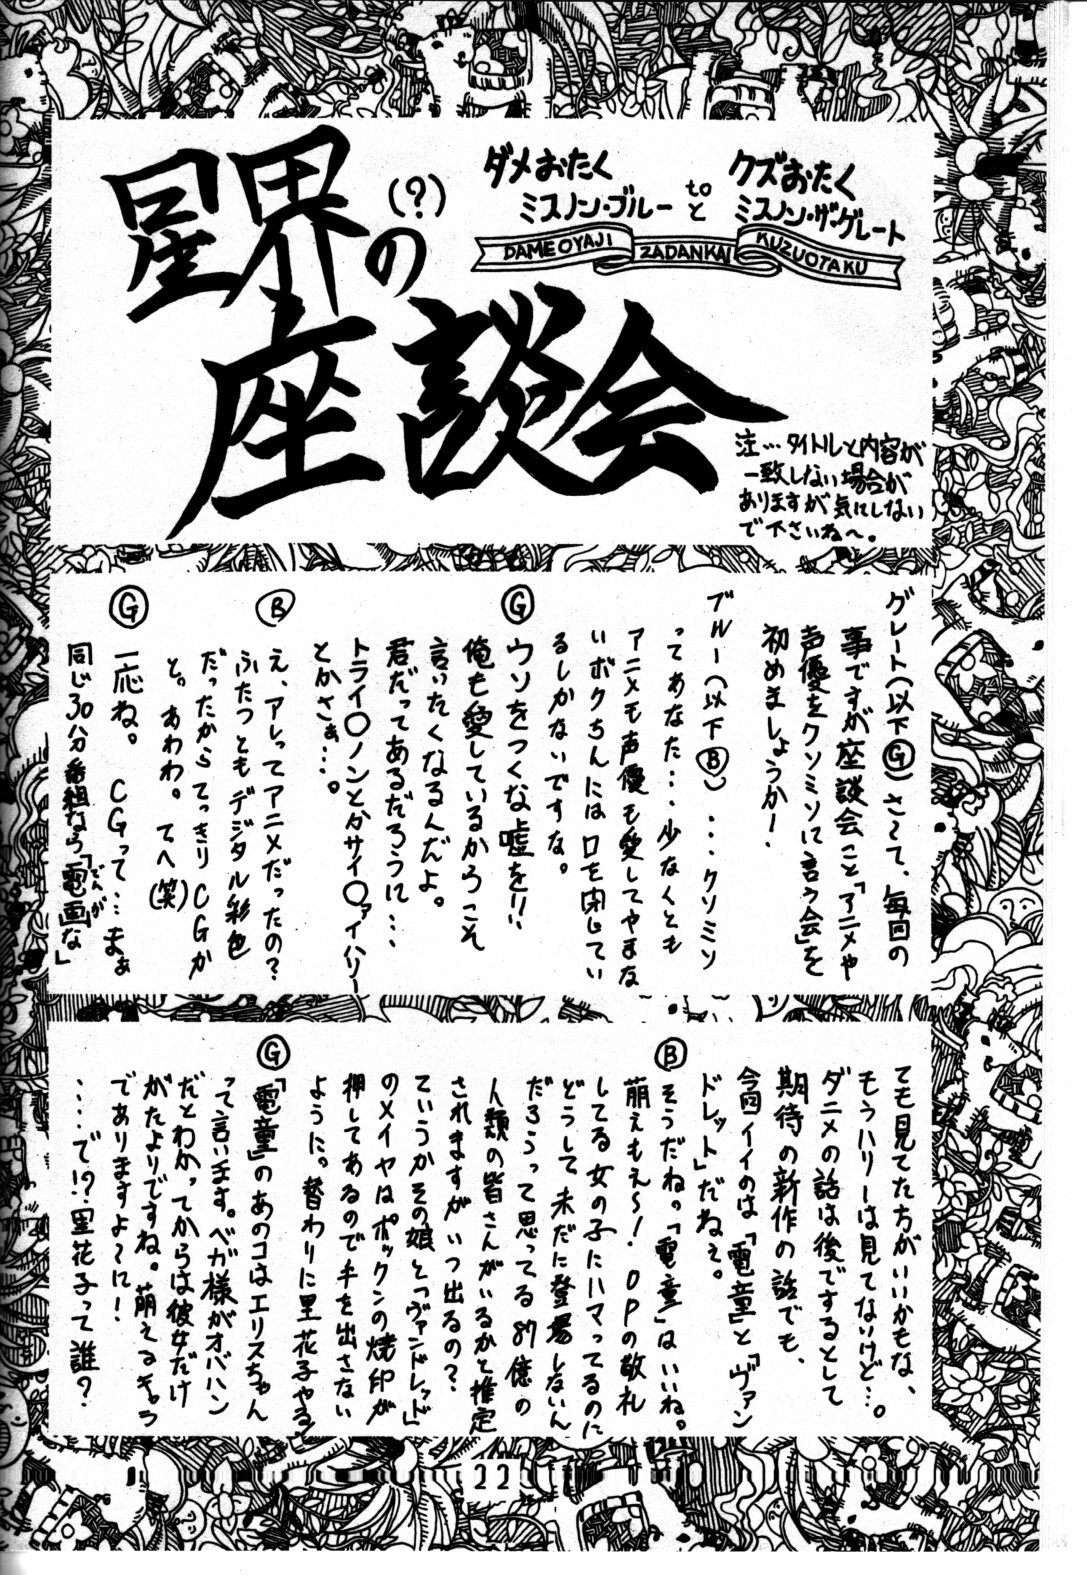 星界の(?)
座談会
ダメおたく
ミスノン・ブルー
to
と
クズおたく
ミスノン・ザ・グレート
DAMEOYAJI ZADANKAI KUZUOTAKU
注…タイトルと内容が
一致しない場合が
ありますが気にしない
で下さいね〜。
グレート(以下Ⓖ)さ〜て、毎回の
事ですが座談会こと「アニメや
声優をクソミソに言う会」を
初めましょうか!
ブルー(以下Ⓑ)…クソミソ
ってあなた…少なくとも
アニメも声優も愛してやまな
いボクちんには口を閉じてい
るしかないですな。
Ⓖ
ウソをつくな嘘を!!
俺も愛しているからこそ
言いたくなるんだよ。
君だってあるだろうに…
トライ〇ノンとかサイ〇ァイハリー
とかさぁ…。
Ⓑ
え、アレってアニメだったの?
ふたつともデジタル彩色
だったからてっきりCGか
と。あわわ。てへ(笑)
Ⓖ
一応ね。CGって…まぁ
同じ30分番組なら「電画な」
でんが
ても見てた方がいいかもな、
もうハリーは見てないけど…。
ダニメの話は後でするとして
期待の新作の話でも、
今回イイのは「電童」と「ヴァン
ドレット」だねぇ。
Ⓑ
そうだねっ「電童」はいいね。
萌えもえ〜!OPの敬礼
してる女の子にハマってるのに
どうして未だに登場しないん
だろうって思ってる87億の
人類の皆さんがいるかと推定
されますがいつ出るの?
ていうかその娘と「ヴァンドレッド」
のメイヤはポックンの焼印が
押してあるので手を出さない
ように。替わりに里花子やる
Ⓖ
「電童」のあのコはエリスちゃん
って言います。ベガ様がオバハン
だとわかってからは彼女だけ
がたよりですね。萌えるぎゃう
でありますよ〜に!
…で!?里花子って誰?
22